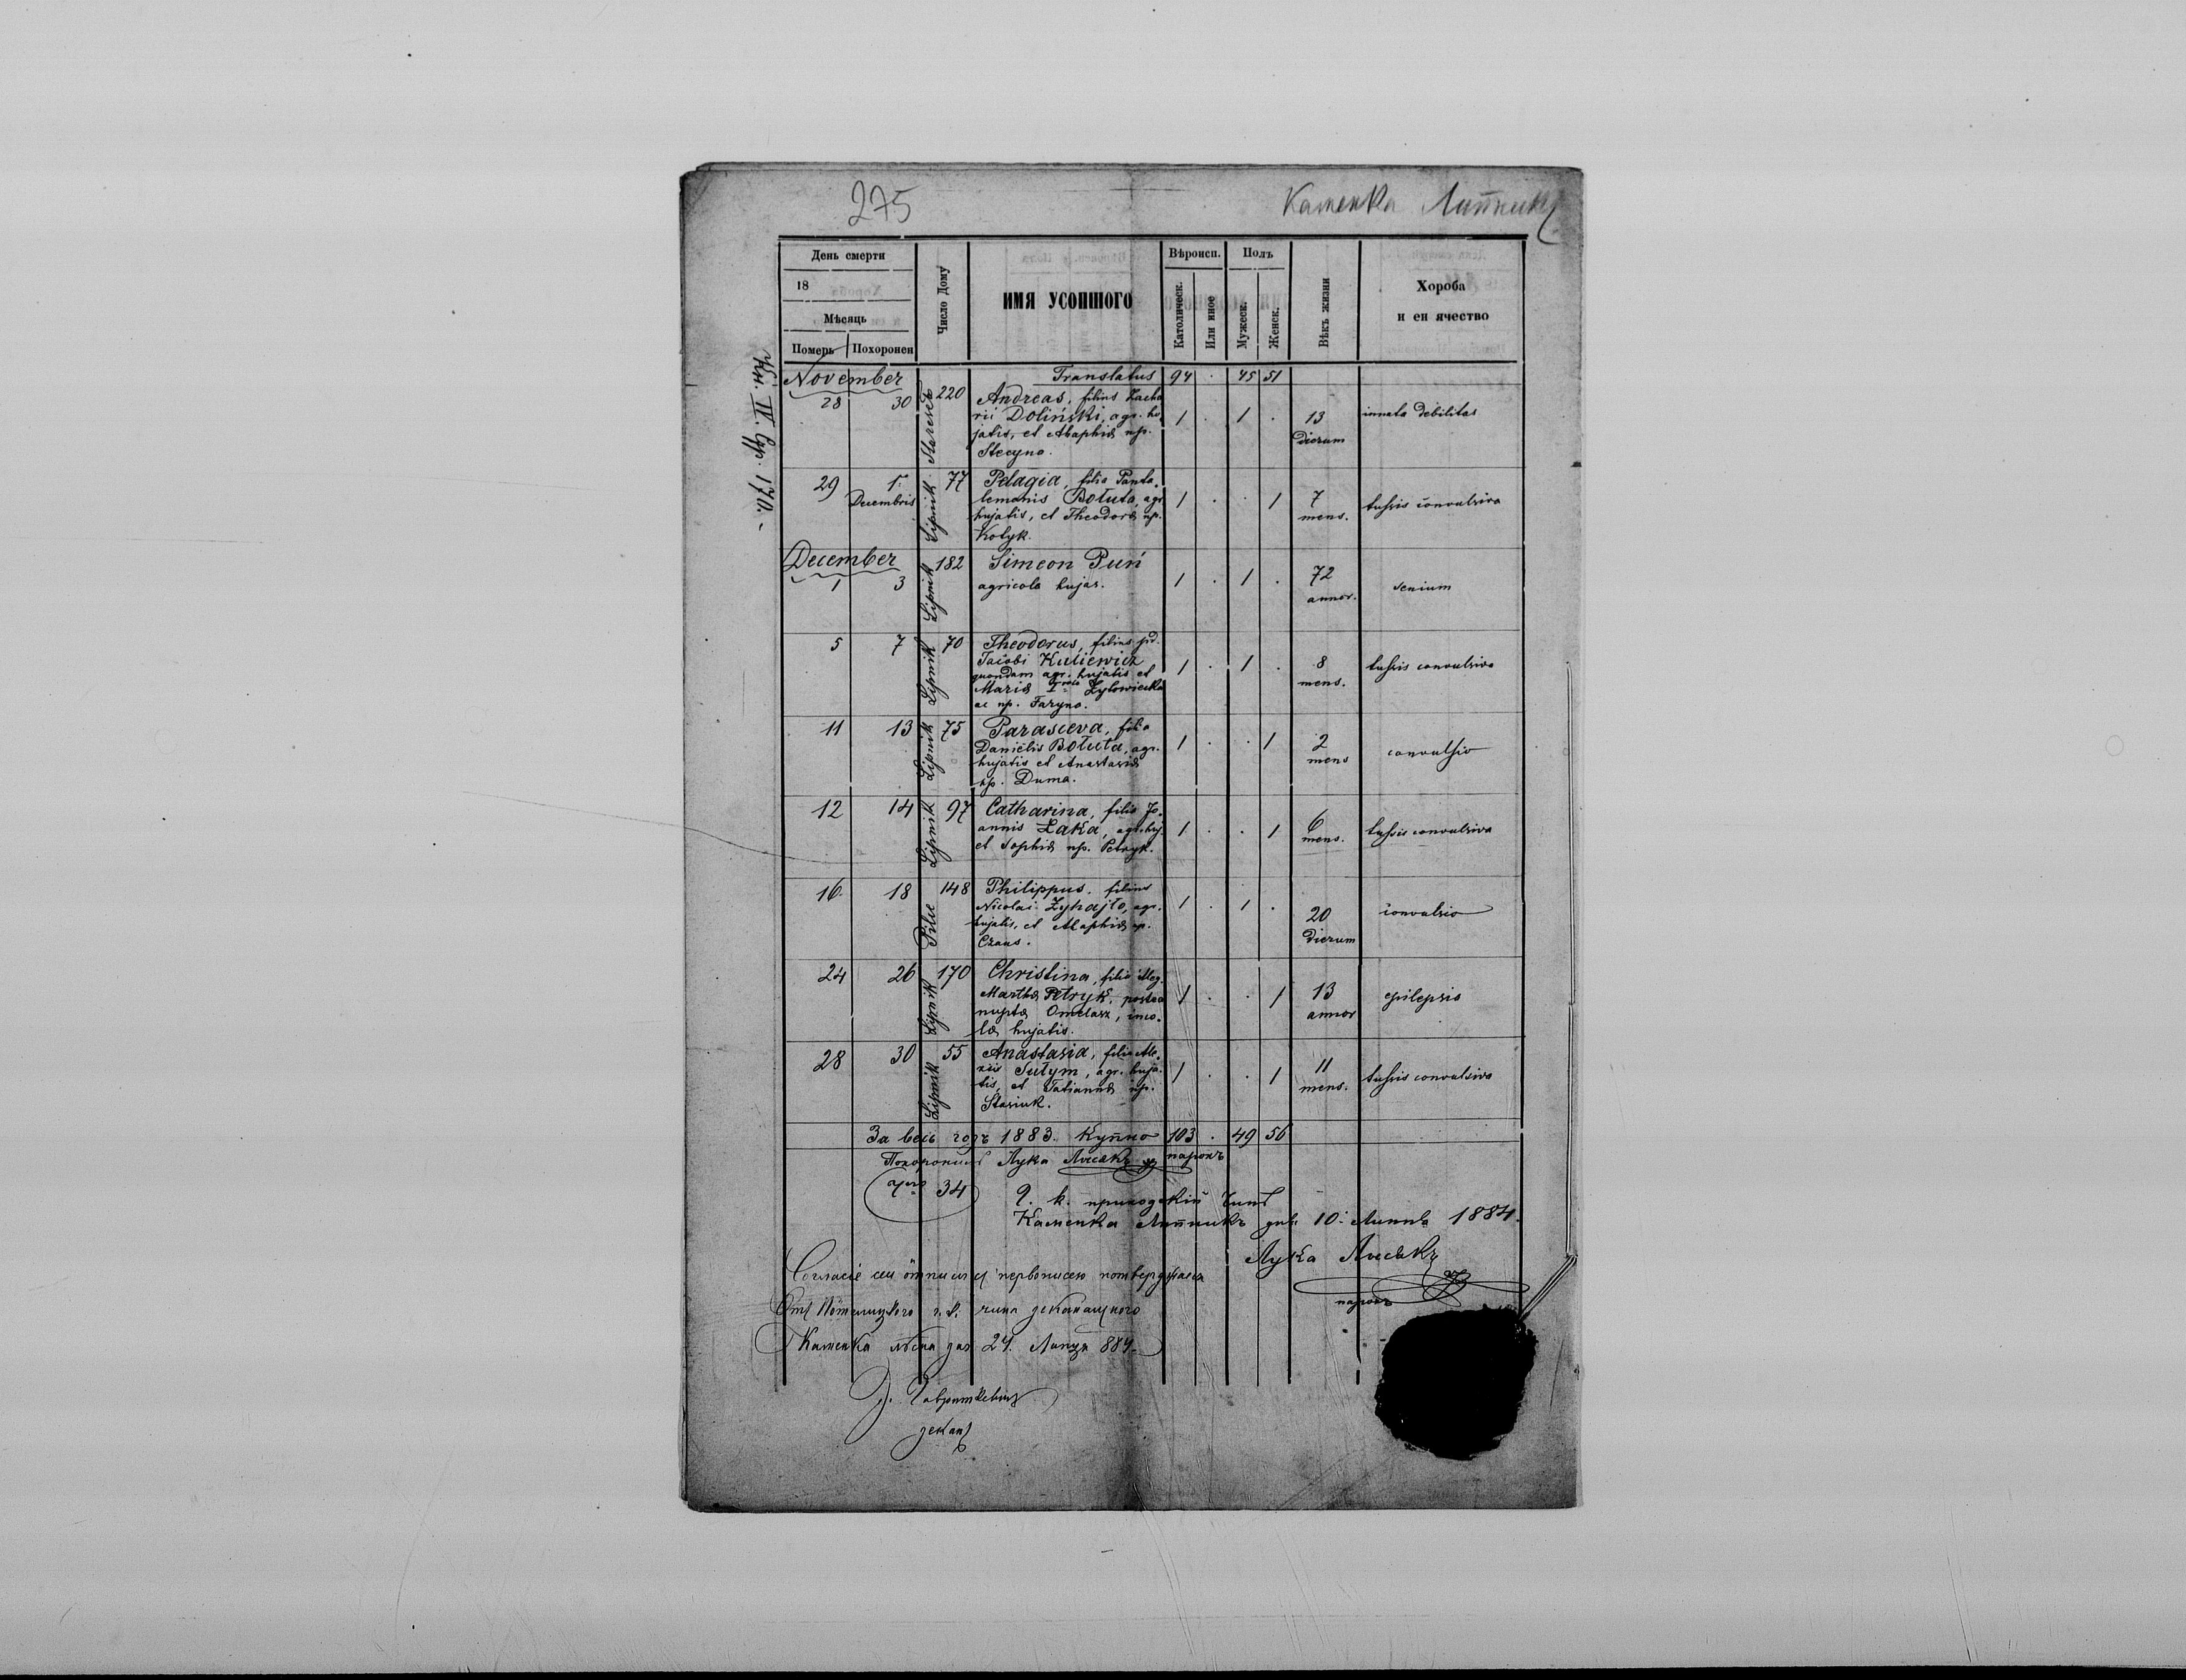 275
Каменка Липникъ
День смерти
18
Мѣсяць
Померъ Похоронен
Число Дому
ИМЯ УСОПШОГО
Вѣроисп.
Католическ.
Или иное
Полъ
Мужеск.
Женск.
Вѣкъ жизни
Хороба
и еи ячество
Кн. IV. Стр. 170.
Translatus 94 . 45 51
November
28 30 220 Andreas, filius Zacha
rii Doliński, agr. hu
jatis, et Agaphiæ np.
Stecyna.
1 . 1 . 13
dierum
innata debilitas
29 1.
Decembris
Lipnik 77 Pelagia, filia Panta.
lemonis Botuta, agr.
hujatis, et Theodoræ np.
Kotyk.
1 . . 1 7
mens.
tussis convulsiva
December
1 3 Lipnik 182 Simeon Puń
agricola hujas.
1 . 1 . 72
annor.
senium
5 7 Lipnik 70 Theodorus, filius pd.
Jacobi Kuliewicz
quondam agr. hujatis et
Mariæ Zytowiecka
ac np. Faryna.
1 . 1 . 8
mens.
tussis convulsiva
11 13 Lipnik 75 Parasceva, filia
Danielis Botuta, agr.
hujatis et Anastasiæ
np. Duma.
1 . . 1 2
mens
convulsio
12 14 Lipnik 97 Catharina, filia Jo.
annis Łaka, agr. huj.
et Sophiæ np. Petryk.
1 . . 1 6
mens.
tussis convulsiva
16 18 Pile 148 Philippus, filius
Nicolai Zyhajło, agr.
hujatis, et Agaphiæ np.
Czaus.
1 . 1 . 20
dierum
convulsio
24 26 Lipnik 170 Christina, filia illeg.
Marthæ Petryk, postea
nuptæ Omelasz, inco.
læ hujatis.
1 . . 1 13
annor
epilepsia
28 30 Lipnik 55 Anastasia, filia Ale.
xii Sutym, agr. huja.
tis, et Tatiannæ np.
Stasiuk.
1 . . 1 11
mens.
tussis convulsiva
За весь годъ 1883. Купно 103 . 49 56
Похоронилъ Лука Лисакъ парохъ
34
г. к. приходскій Чинъ
Каменка Липникъ дня 10. Липця 1884.
Лука Лисакъ
парохъ
Согласіе сеи отписи съ первописею потверджаєся
Отъ г. к. чина деканацкого
Каменка лѣсна дня 24. Липця 884.
деканъ